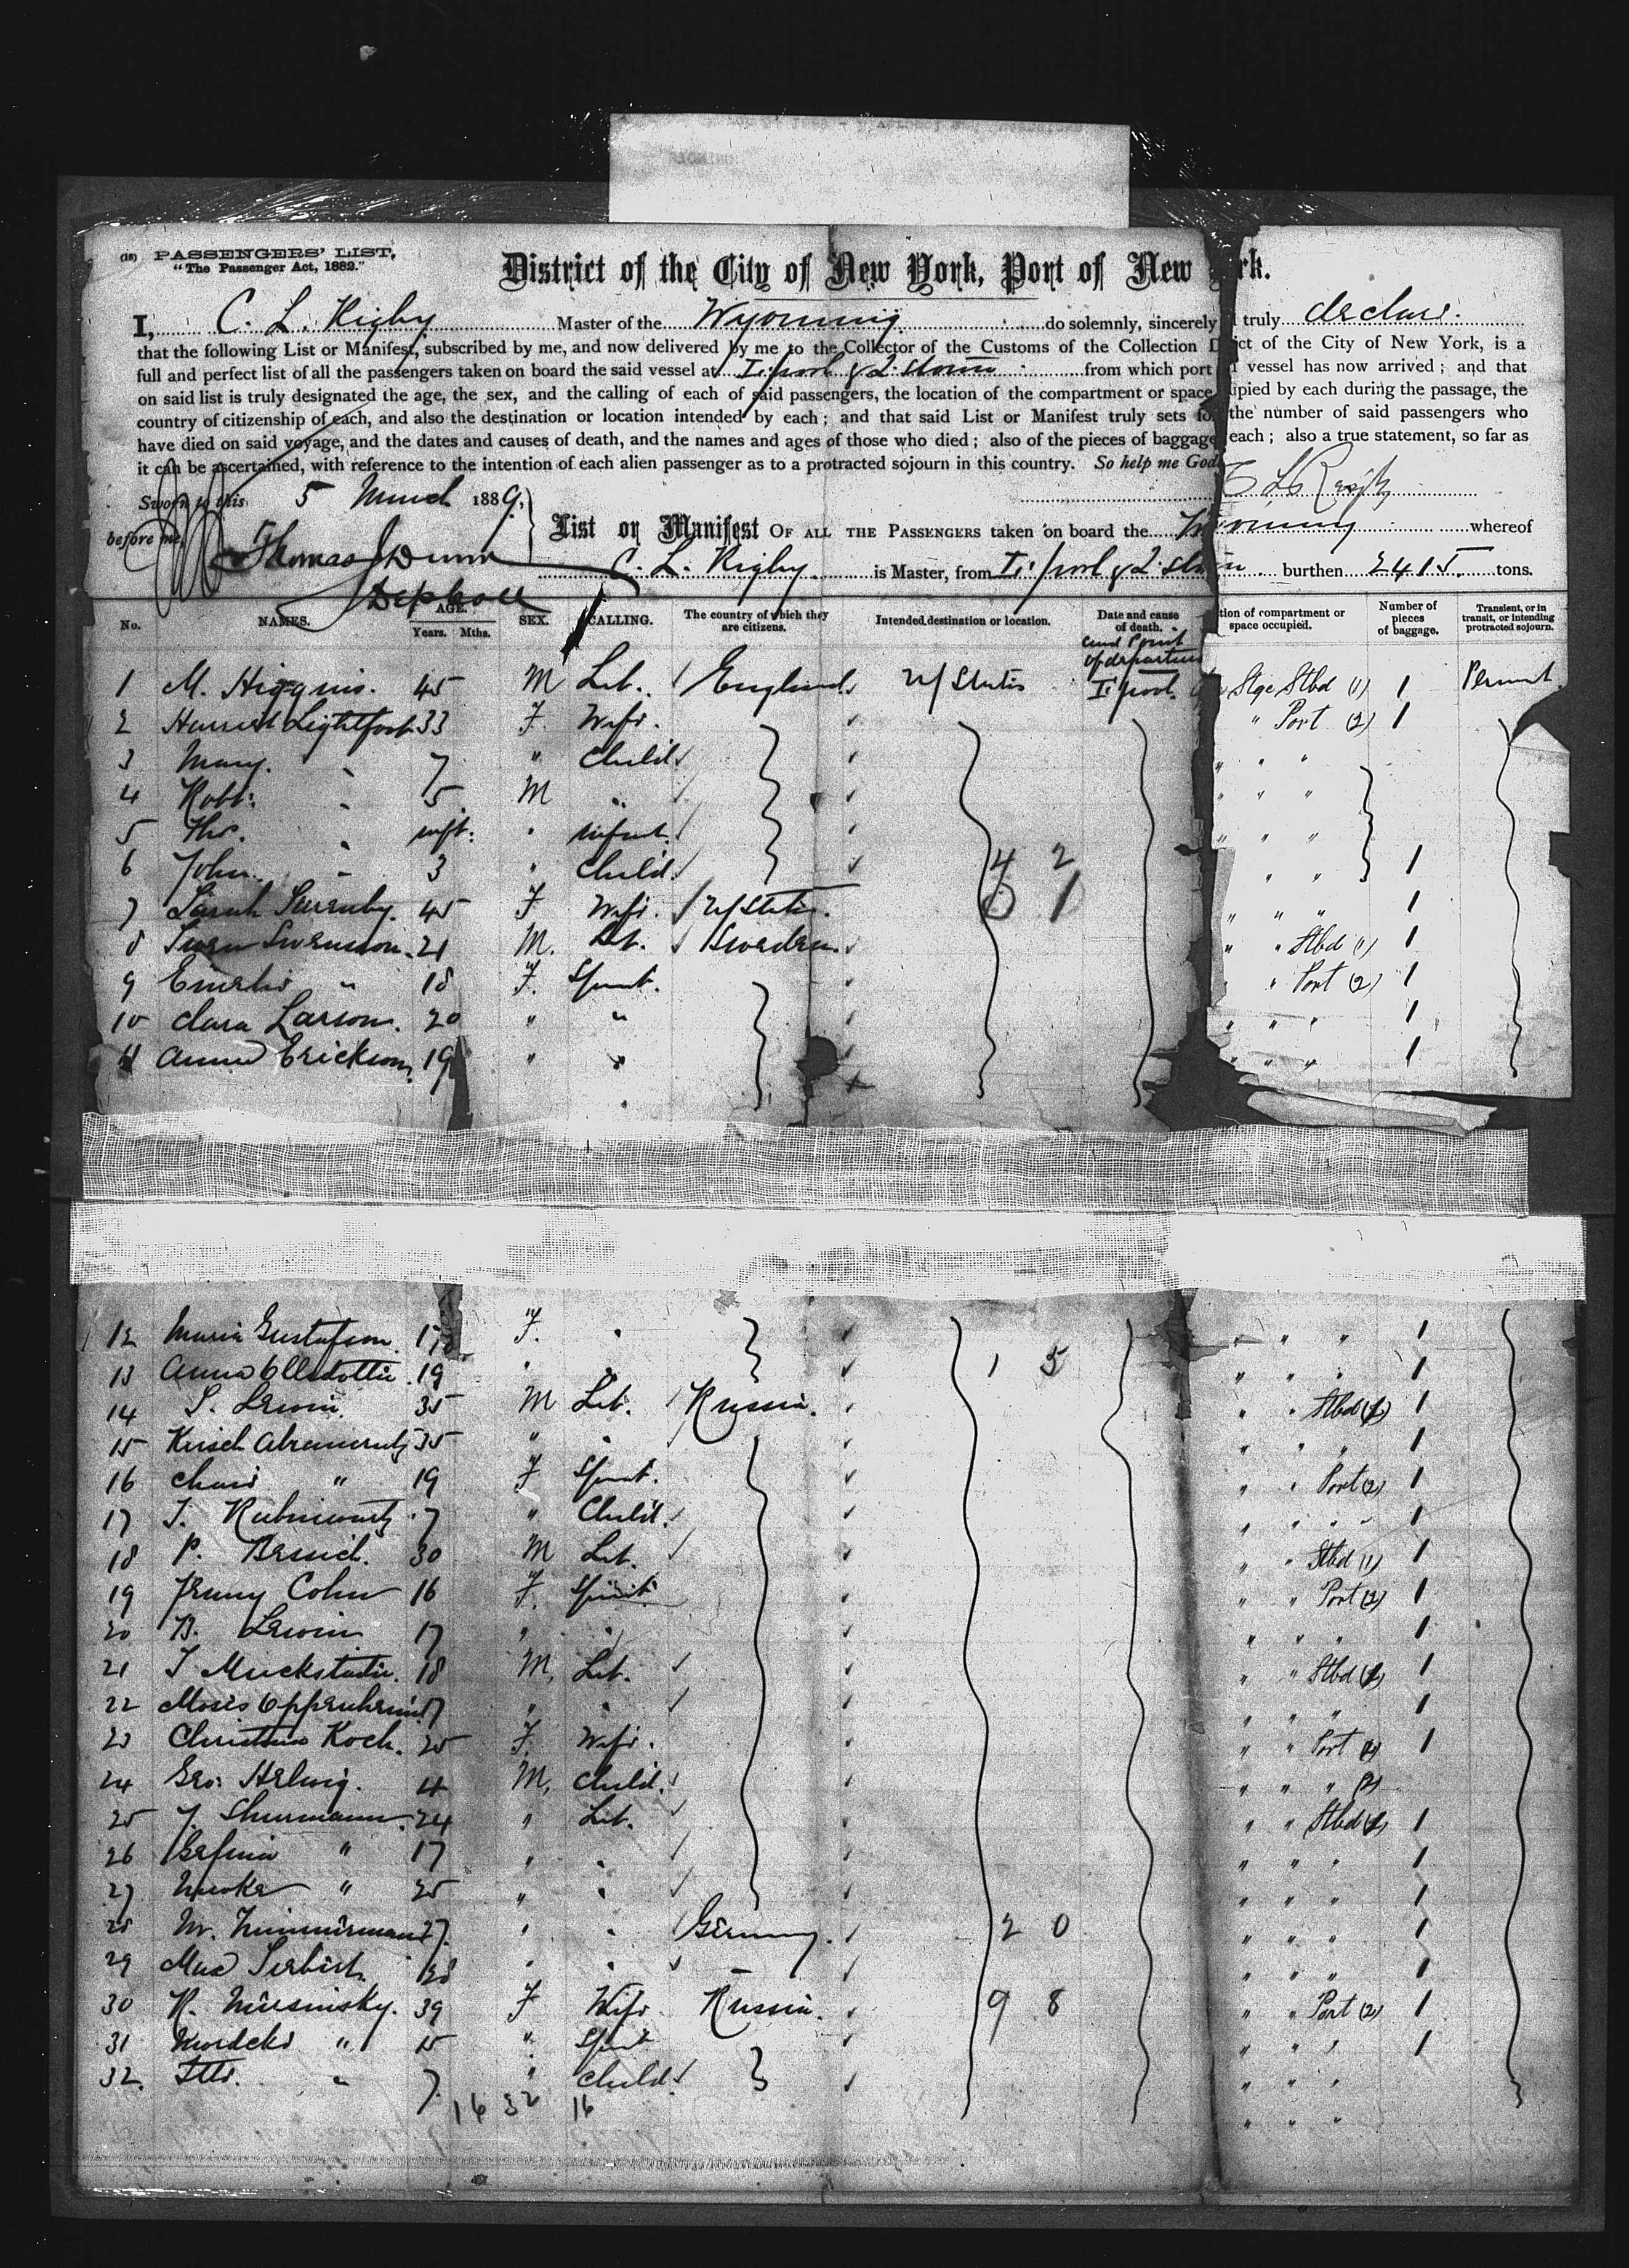 (18) PASSENGERS' LIST.
"The Passenger Act, 1882."
District of the City of New York, Port of New rk.
I, C. L. Rigby Master of the Wyoming do solemnly, sincerely truly declare.
that the following List or Manifest, subscribed by me, and now delivered by me to the Collector of the Customs of the Collection D ict of the City of New York, is a
full and perfect list of all the passengers taken on board the said vessel at L'pool & Q'stown from which port vessel has now arrived; and that
on said list is truly designated the age, the sex, and the calling of each of said passengers, the location of the compartment or space upied by each during the passage, the
country of citizenship of each, and also the destination or location intended by each; and that said List or Manifest truly sets fo the number of said passengers who
have died on said voyage, and the dates and causes of death, and the names and ages of those who died; also of the pieces of baggage each; also a true statement, so far as
it can be ascertained, with reference to the intention of each alien passenger as to a protracted sojourn in this country. So help me God
C L Rigby
Sworn to this 5 March 1889,
before me,
Thomas J Dunn
Dep Coll
List or Manifest OF ALL THE PASSENGERS taken on board the Wyoming whereof
C. L. Rigby is Master, from L'pool & Q'stown burthen 2415 tons.
No. NAMES. AGE. Years. Mths. SEX. CALLING. The country of which they are citizens. Intended destination or location. Date and cause of death. and Point of departure tion of compartment or space occupied. Number of pieces of baggage. Transient, or in transit, or intending protracted sojourn.
1 M. Higgins. 45 M Lab. England U/States L'pool. Stge Stbd (1) 1 Permt.
2 Harriet Lightfoot 33 F Wife. " Port (2) 1
3 Mary. " 7 " Child " " "
4 Robt. " 5 M " " " "
5 Thos. " inft. " infant " " "
6 John. " 3 " Child 4 2 " " 1
7 Sarah 45 F Wife. U/States. 0 1 " " " 1
8 Swen Swensson. 21 M. Lab. Sweden. " " Stbd (1) 1
9 Emelie " 18 F. Spinst. " Port (2) 1
10 Clara Larson. 20 " " " " " 1
11 Anna Erickson. 19 " " " " " 1
12 Maria Gustafson. F. " " " " 1
13 Anna Ollsdotter. 19 " " 1 5 " " " 1
14 S. Lewin. 35 M Lab. Russia. " " Stbd (1) 1
15 35 " " " " " 1
16 " 19 F Spinst. " " Port (2) 1
17 7 " Child. " " " " 1
18 P. 30 M Lab. " " Stbd (1) 1
19 Jenny Cohn 16 F. Spinst. " " Port (2) 1
20 B. Lewin 17 " " " " " 1
21 18 M, Lab. " " Stbd (1) 1
22 Moses Oppenheim 17 " " " " " 1
23 Christina Koch. 25 F. Wife. " " Port (2) 1
24 Geo: Helwig. 4 M, Child. " " " (2)
25 J. Shurmann. 24 " Lab. " " Stbd (1) 1
26 " 17 " " " " " 1
27 " 25 " " " " " 1
28 27. " " Germany. 2 0 " " " 1
29 Max 28 " " " " " 1
30 R. 39 F Wife Russia. 9 8 " " Port (2) 1
31 " 15 " Spinst " " " 1
32. " 7. " Child. " " "
16 32 16 " " "